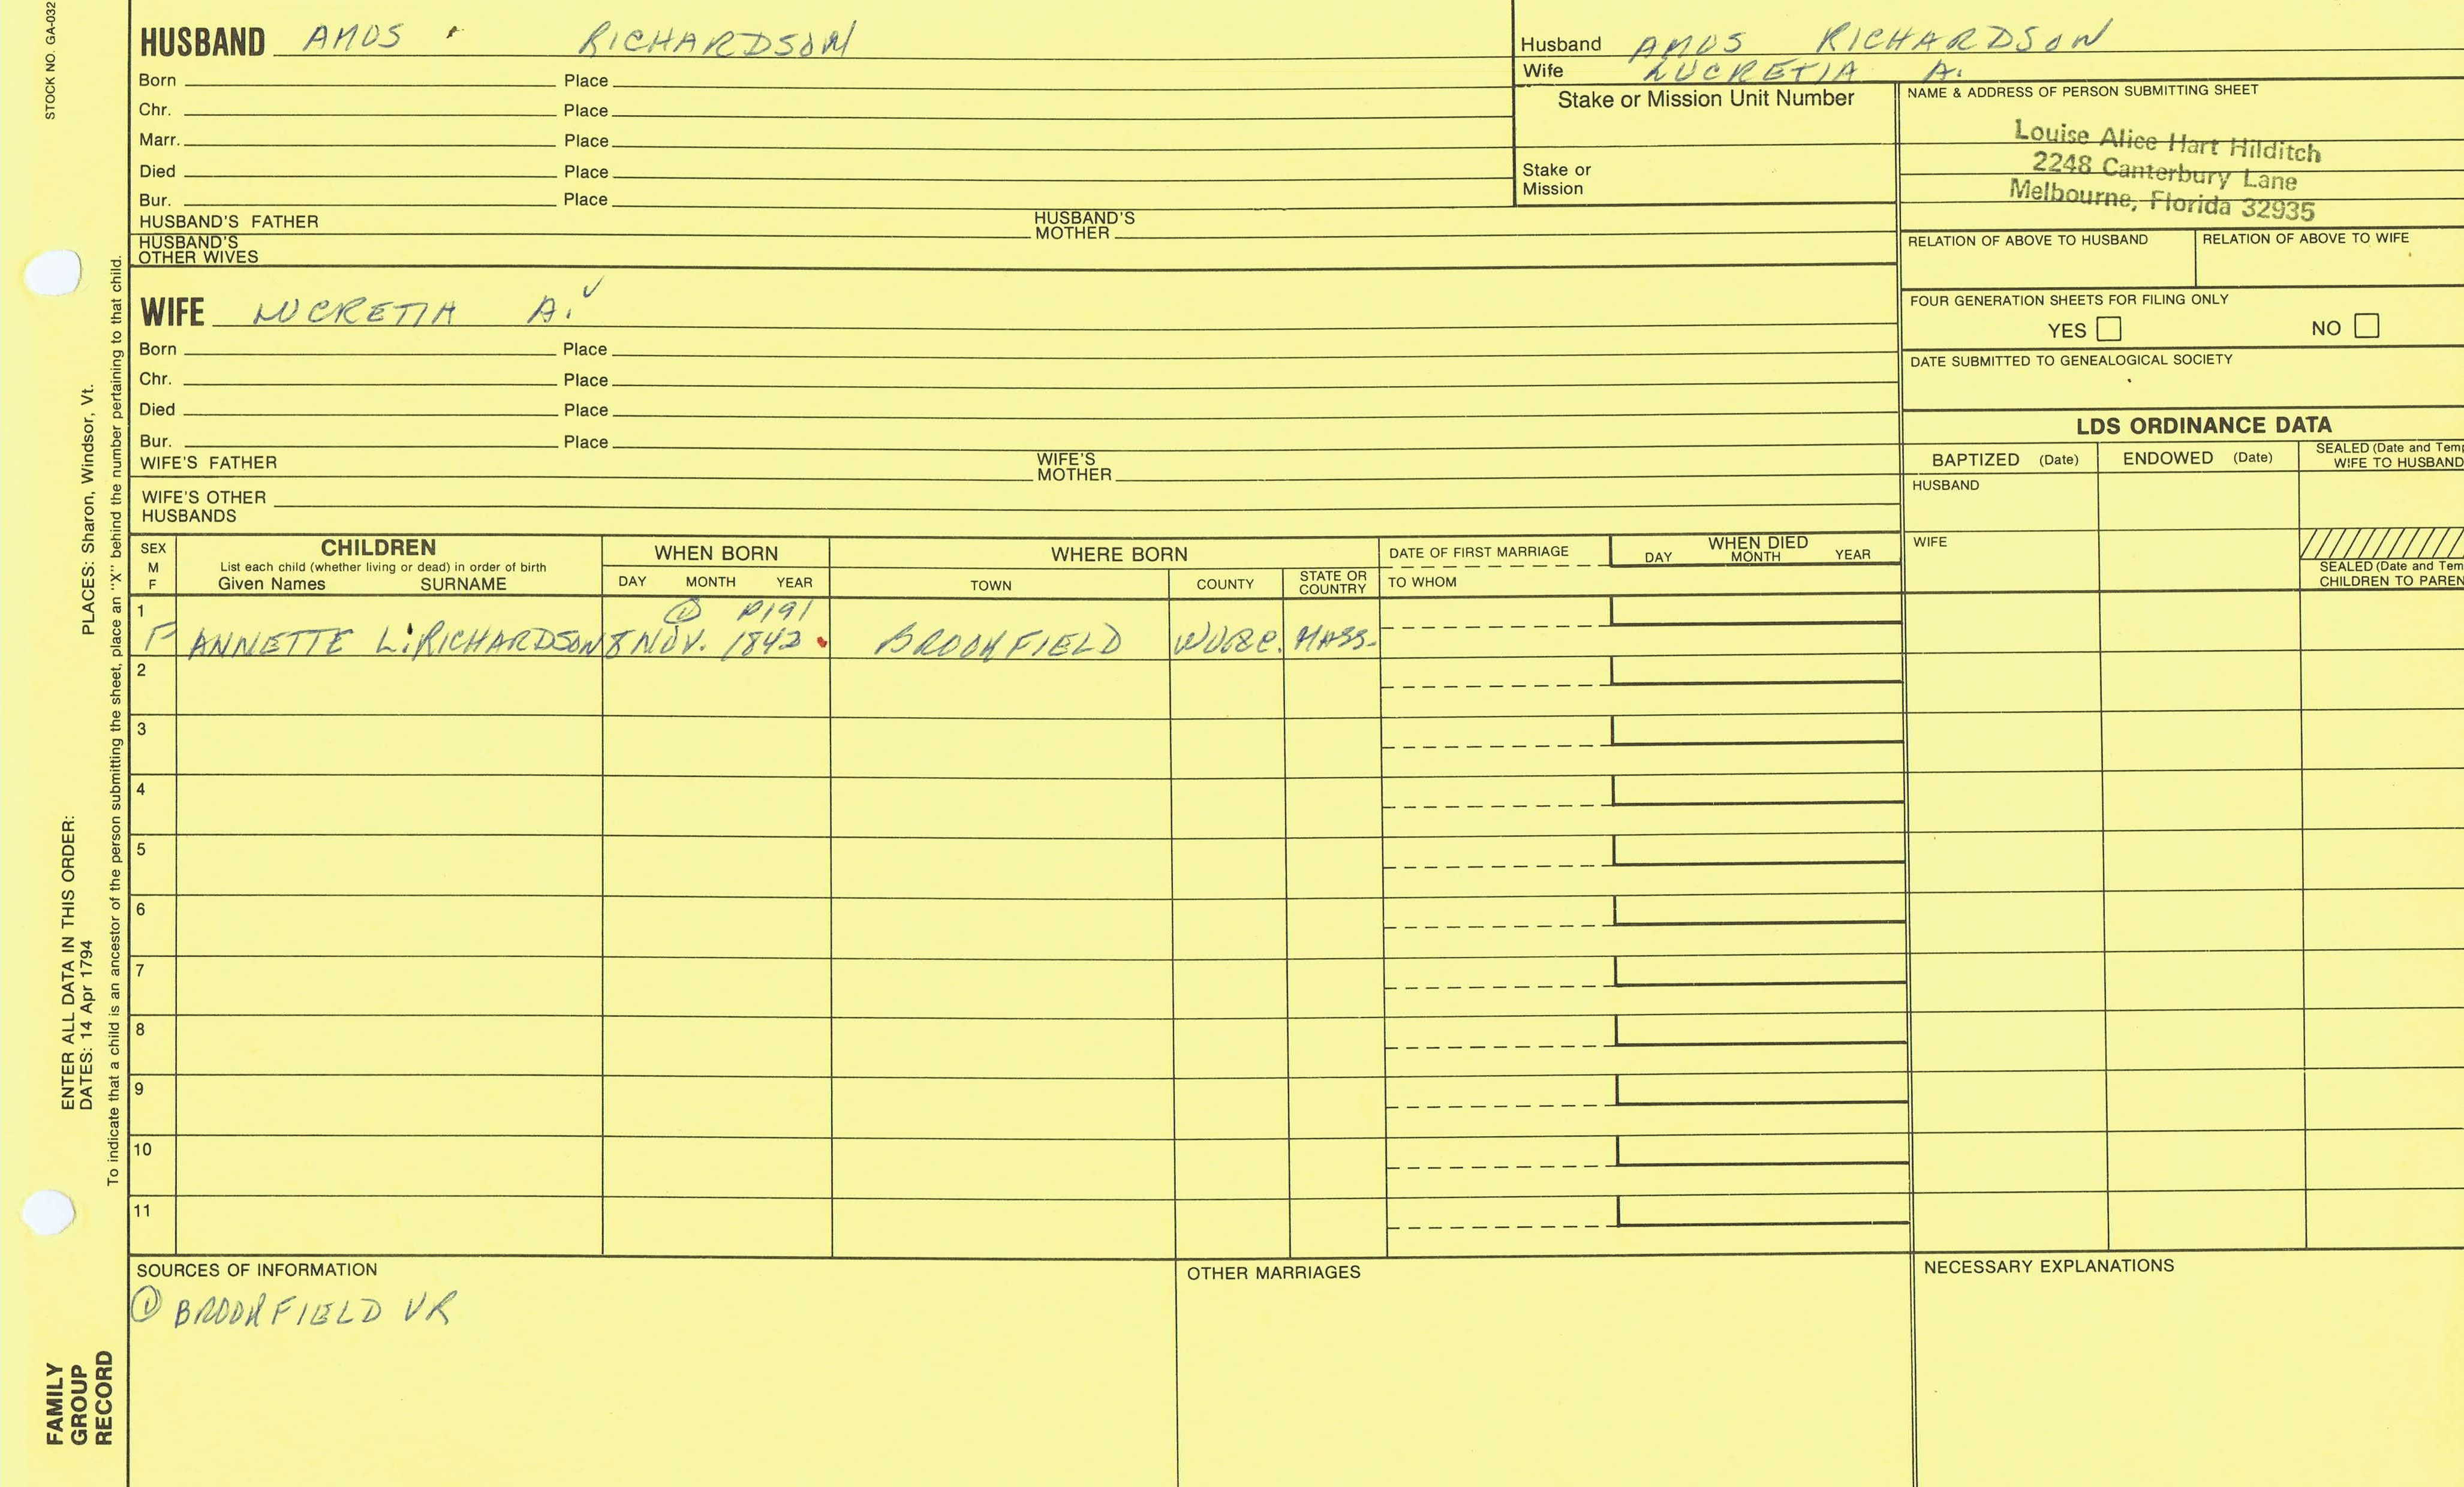 STOCK NO. GA-032
PLACES: Sharon, Windsor, Vt.
ENTER ALL DATA IN THIS ORDER:
DATES: 14 Apr 1794
To indicate that a child is an ancestor of the person submitting the sheet, place an "X" behind the number pertaining to that child.
FAMILY
GROUP
RECORD
HUSBAND AMOS RICHARDSON
Born Place
Chr. Place
Marr. Place
Died Place
Bur. Place
HUSBAND'S FATHER HUSBAND'S MOTHER
HUSBAND'S
OTHER WIVES
Husband AMOS RICHARDSON
Wife LUCRETIA A.
Stake or Mission Unit Number
Stake or
Mission
NAME & ADDRESS OF PERSON SUBMITTING SHEET
Louise Alice Hart Hilditch
2248 Canterbury Lane
Melbourne, Florida 32935
RELATION OF ABOVE TO HUSBAND RELATION OF ABOVE TO WIFE
FOUR GENERATION SHEETS FOR FILING ONLY
YES NO
DATE SUBMITTED TO GENEALOGICAL SOCIETY
WIFE LUCRETIA A. ✓
Born Place
Chr. Place
Died Place
Bur. Place
WIFE'S FATHER WIFE'S MOTHER
WIFE'S OTHER
HUSBANDS
LDS ORDINANCE DATA
BAPTIZED (Date) ENDOWED (Date) SEALED (Date and Tem
WIFE TO HUSBAND
HUSBAND
WIFE
SEALED (Date and Tem
CHILDREN TO PAREN
SEX
M
F
CHILDREN
List each child (whether living or dead) in order of birth
Given Names SURNAME
WHEN BORN
DAY MONTH YEAR
WHERE BORN
TOWN COUNTY STATE OR COUNTRY
DATE OF FIRST MARRIAGE
TO WHOM
WHEN DIED
DAY MONTH YEAR
1 ① P191
F ANNETTE L. RICHARDSON 8 NOV. 1842 BROOKFIELD WORC. MASS.
2
3
4
5
6
7
8
9
10
11
SOURCES OF INFORMATION
① BROOKFIELD VR
OTHER MARRIAGES
NECESSARY EXPLANATIONS